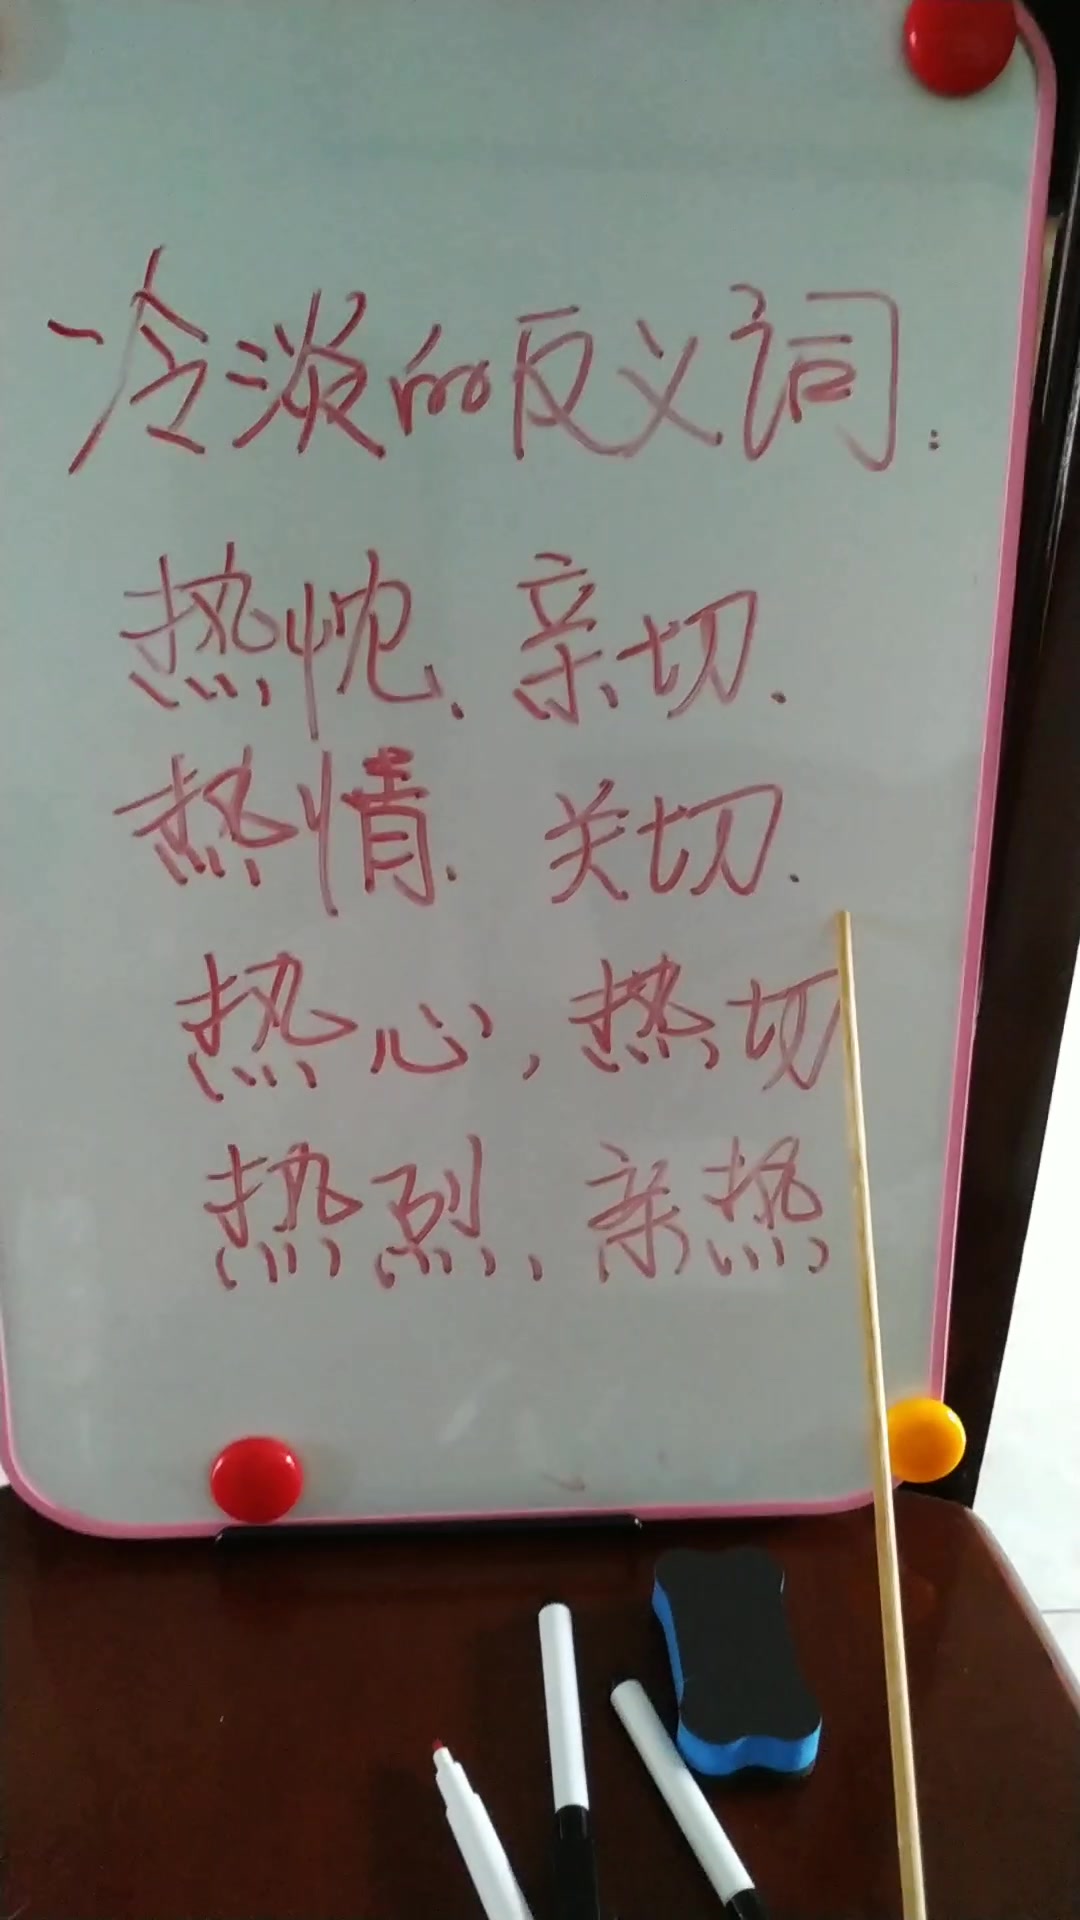 冷淡的反义词:
热忱、亲切.
热情.关切.
热心,热切
热烈、亲热